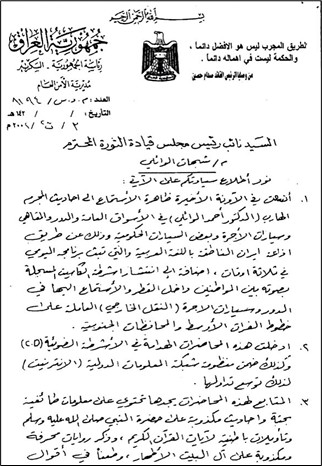 بسم الله الرحمن الرحيم
جمهورية العراق
رئاسة الجمهورية - السكرتير
مديرية الأمن العام
العدد: م.د.س/ ٨١٩٤
التاريخ: / /١٤٢هـ
٣/ت٢/٢٠٠١م
لطريق المجرب ليس هو الأفضل دائماً،
والحكمة ليست في اهماله دائماً.
من وصايا الرئيس القائد صدام حسين
السيد نائب رئيس مجلس قيادة الثورة المحترم
م/ شبهات الوائلي
نود اطلاع سيادتكم على الآتية:
١. اتضحت في الآونة الأخيرة ظاهرة الاستماع الى احاديث المجرم
الهارب (الدكتور أحمد الوائلي) في الأسواق العامة والدور والمقاهي
وسيارات الأجرة وبعض السيارات الحكومية وذلك عن طريق
اذاعة ايران الناطقة باللغة العربية والتي تبث برنامج اليومي
في ثلاثة اوقات، اضافة الى انتشار اشرطة الكاسيت المسجلة
بصوته بين المواطنين داخل القطر والاستماع اليها في
الدور وسيارات الأجرة (النقل الخارجي) العاملة على
خطوط الفرات الأوسط والمحافظات الجنوبية.
٢. ادخلت هذه المحاضرات الهدامة في الأشرطة الضوئية (C.D)
وكذلك ضمن منظومة شبكة المعلومات الدولية (الانترنيت)
لذلك توسيع تداولها.
٣. المتابع لهذه المحاضرات يجدها تحتوي على معلومات طائفية
بحتة واحاديث مكذوبة على حضرة النبي صلى الله عليه وسلم
وتأويلات باطنية لآيات القرآن الكريم، وذكر روايات محرفة
ومكذوبة على آل البيت الأطهار، وطعناً في أقوال